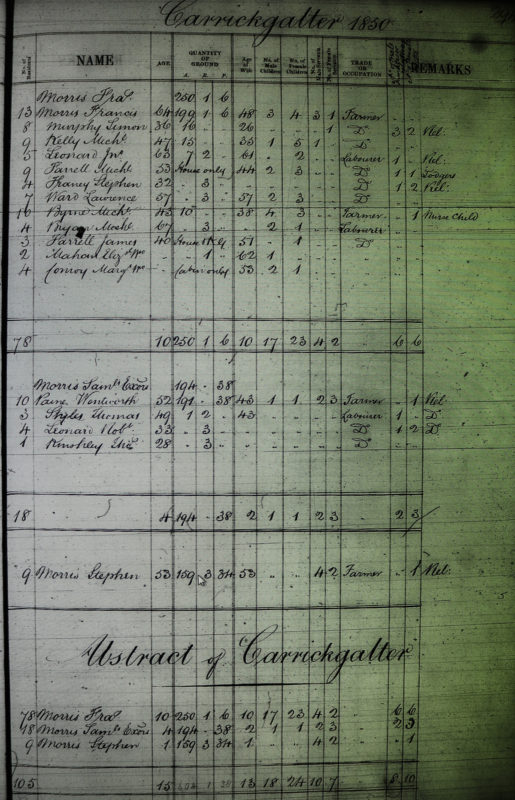 Carrickgatter 1850
No. of Resident NAME AGE QUANTITY OF GROUND Age of Wife No. of Male Children No. of Female Children TRADE OR OCCUPATION REMARKS
A. R. P.
Morris Fras. 250 1 6
13 Morris Francis 64 199 1 6 48 3 4 3 1 Farmer
8 Murphy Simon 36 16 " " 26 " " " 1 Do 3 2 Rel:
9 Kelly Michl. 47 15 " " 35 1 5 1 " Do
5 Leonard Jno. 63 7 2 " 61 " 2 " " Labourer 1 " Rel:
9 Farrell Michl. 53 House only 44 2 3 " " Do 1 1 Lodgers
4 Franey Stephen 32 " 3 Do 1 2 Rel:
7 Ward Lawrence 57 " 3 " 57 2 3 " " Do
16 Byrne Michl. 43 10 " " 38 4 3 " " Farmer " 1 Nurse Child
4 67 " 3 " " 2 1 " " Labourer
3 Farrell James 40 House only 51 " 1 " " Do
2 Mahan 1 " 62 1
4 Conroy Margt. Cabin only 53 2 1
78 10 250 1 6 10 17 23 4 2 6 6
Morris Saml. Exors 194 " 38
10 Paine Wentworth 52 191 " 38 43 1 1 2 3 Farmer " 1 Rel:
3 Styles Thomas 49 1 2 " 43 Labourer 1 " Do
4 Leonard Robt. 33 " 3 Do 1 2 Do
1 28 " 3 Do
18 4 194 " 38 2 1 1 2 3 2 3
9 Morris Stephen 53 159 3 34 53 " " 4 2 Farmer " 1 Rel:
Abstract of Carrickgatter
78 Morris Fras. 10 250 1 6 10 17 23 4 2 6 6
18 Morris Saml. Exors 4 194 " 38 2 1 1 2 3 2 3
9 Morris Stephen 1 159 3 34 1 " " 4 2 " 1
105 15 13 18 24 10 7 8 10